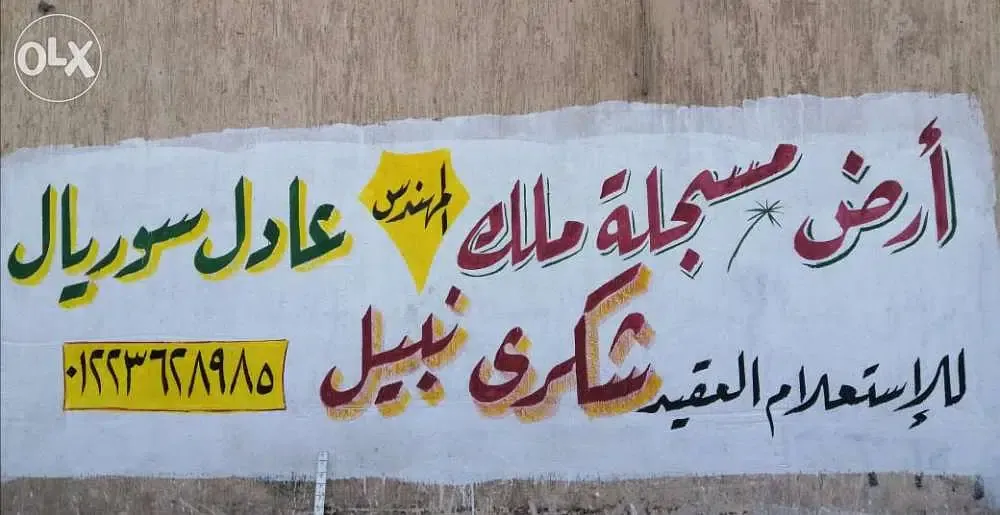 OLX
أرض مسجلة ملك المهندس عادل سوريال
للإستعلام العقيد شكرى نبيل ٠١٢٢٣٦٢٨٩٨٥